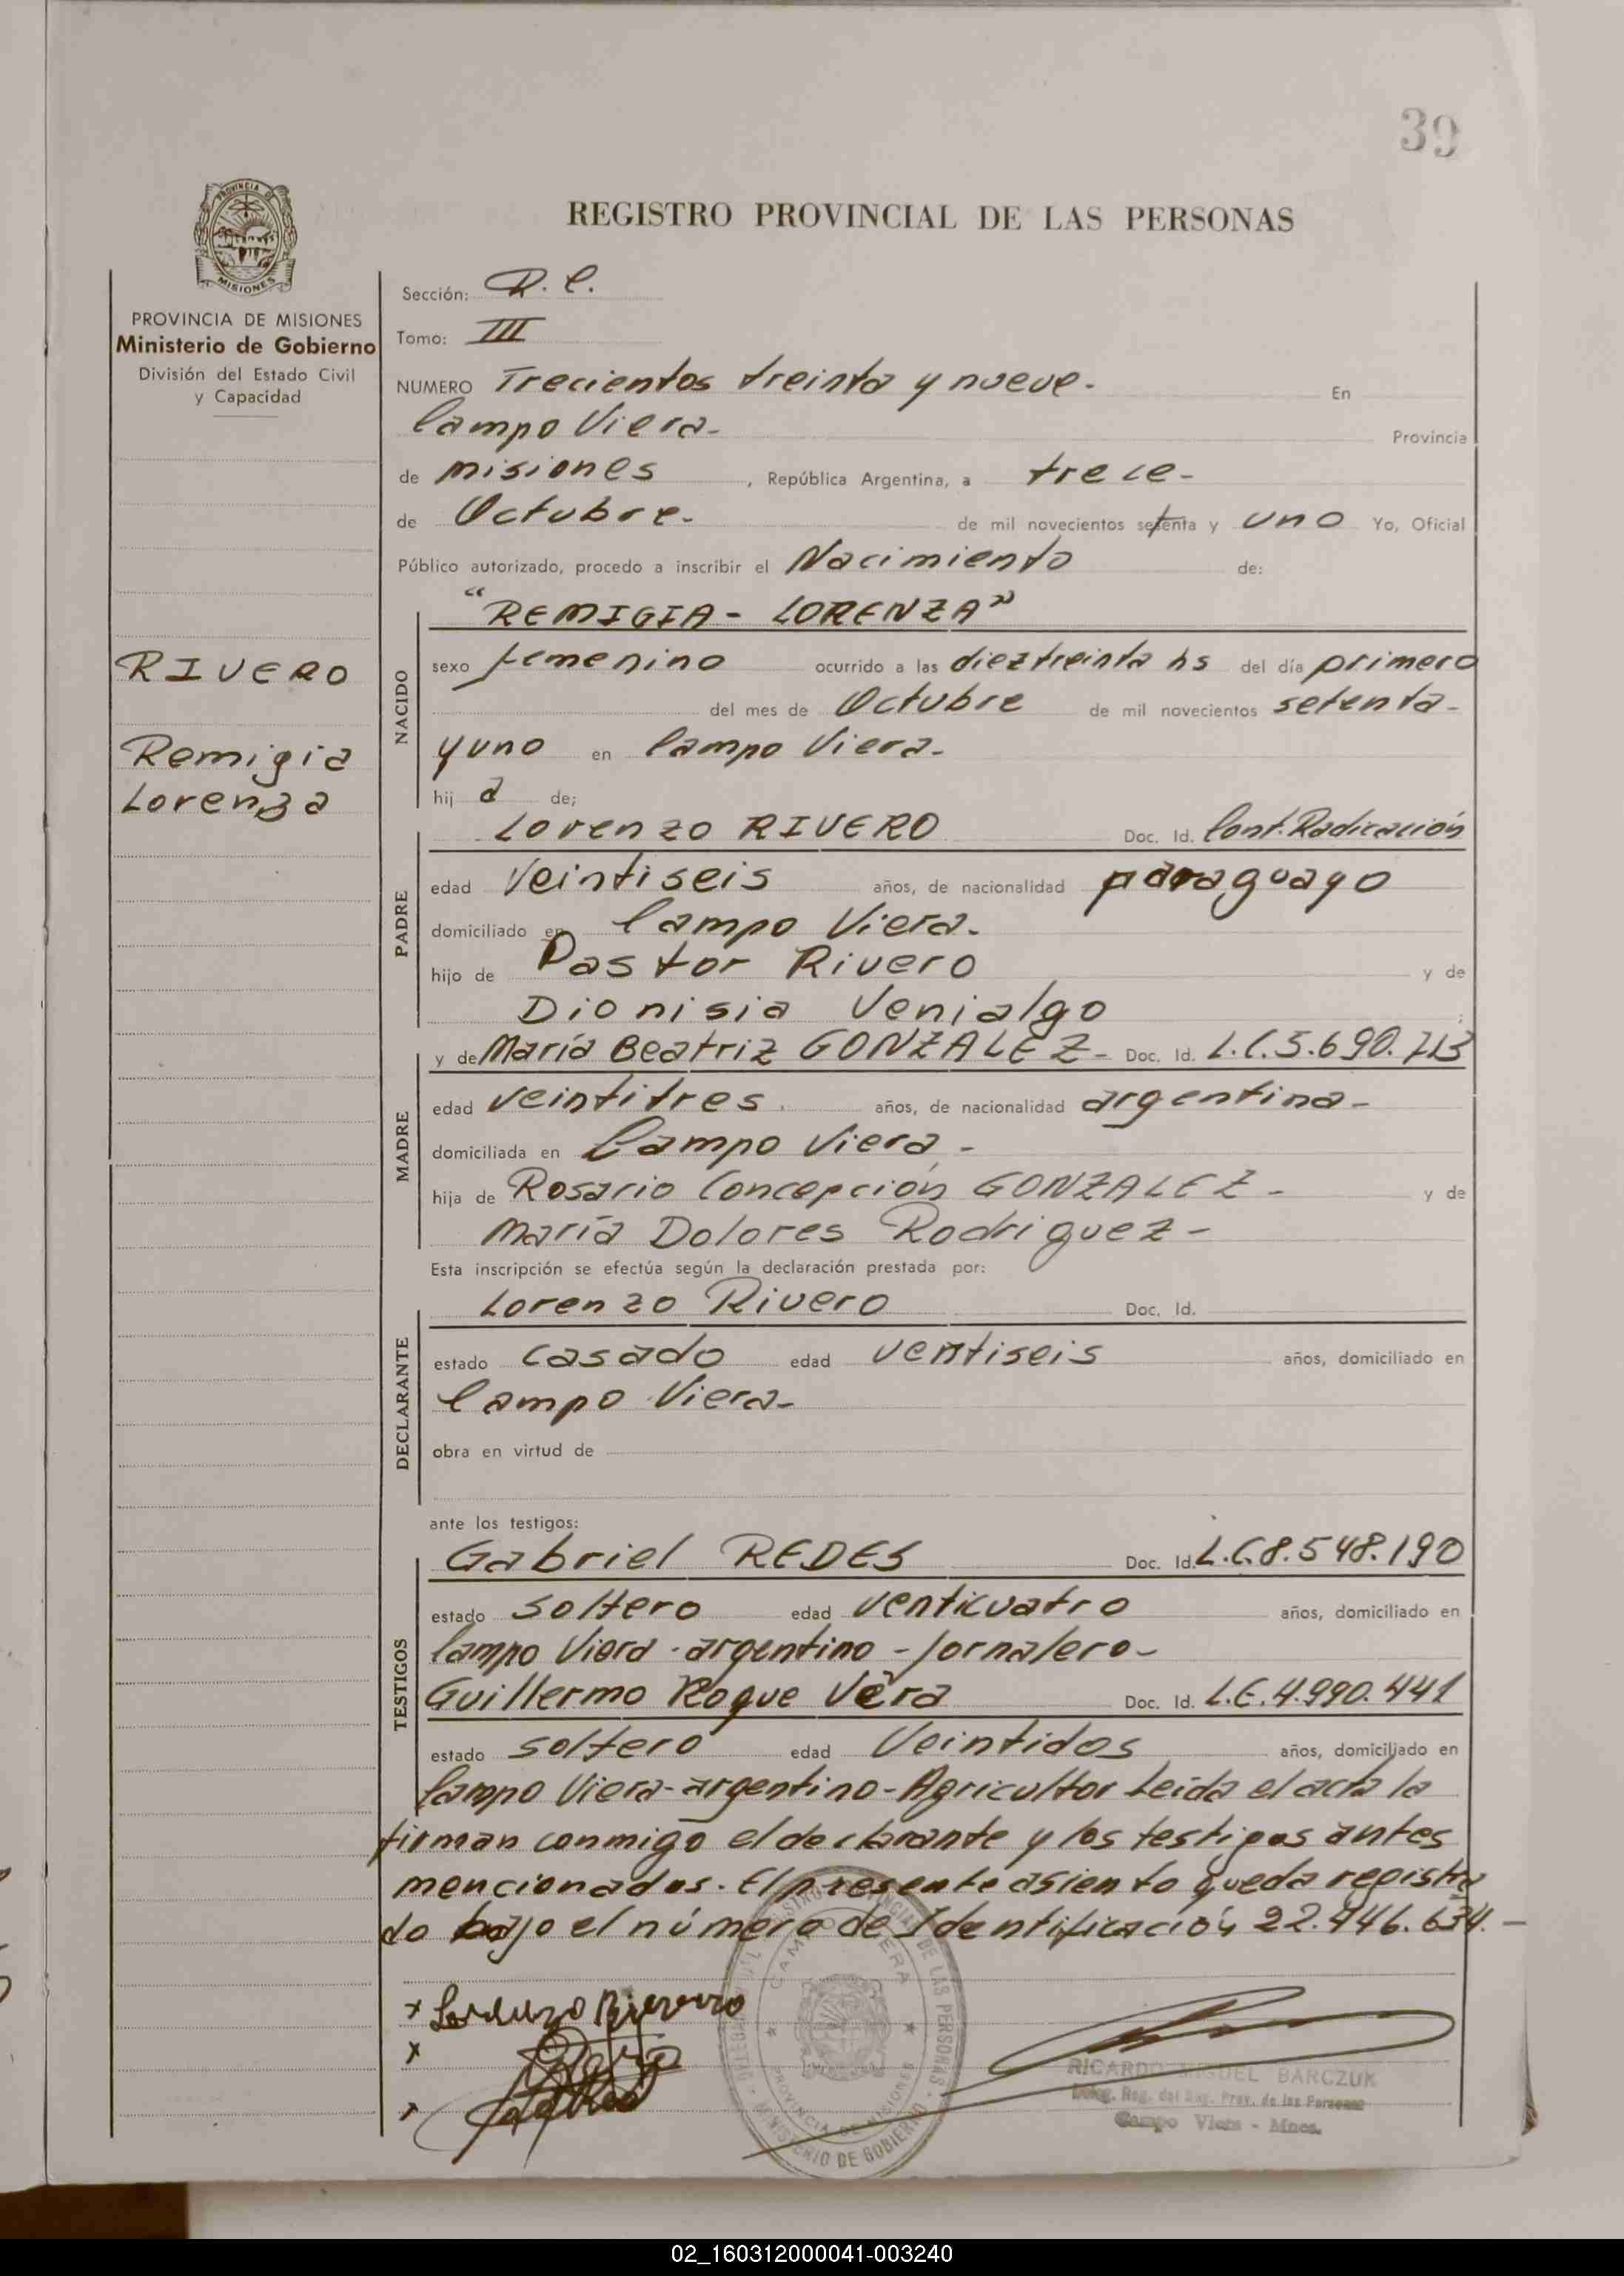 39
REGISTRO PROVINCIAL DE LAS PERSONAS
PROVINCIA DE MISIONES
Ministerio de Gobierno
División del Estado Civil
y Capacidad
RIVERO
Remigia
Lorenza
Sección: R. C.
Tomo: III
NUMERO Trecientos treinta y nueve. En
Campo Viera- Provincia
de misiones, República Argentina, a trece-
de Octubre. de mil novecientos setenta y uno Yo, Oficial
Público autorizado, procedo a inscribir el Nacimiento de:
"REMIGIA - LORENZA"
NACIDO
sexo femenino ocurrido a las dieztreinta hs del día primero
del mes de Octubre de mil novecientos setenta-
y uno en Campo Viera.
hij a de;
Lorenzo RIVERO Doc. Id. Cont. Radicación
PADRE
edad Veintiseis años, de nacionalidad paraguayo
domiciliado en Campo Viera.
hijo de Pastor Rivero y de
Dionisia Venialgo ;
y de María Beatriz GONZALEZ- Doc. Id. L.C.5.690.713
MADRE
edad veintitres. años, de nacionalidad argentina-
domiciliada en Campo Viera-
hija de Rosario Concepción GONZALEZ- y de
María Dolores Rodriguez-
Esta inscripción se efectúa según la declaración prestada por:
Lorenzo Rivero Doc. Id.
DECLARANTE
estado casado edad ventiseis años, domiciliado en
Campo Viera-
obra en virtud de
ante los testigos:
Gabriel REDES Doc. Id. L.C.8.548.190
TESTIGOS
estado soltero edad venticuatro años, domiciliado en
Campo Viera - argentino - Jornalero-
Guillermo Roque Vera Doc. Id. L.E.4.990.441
estado soltero edad Veintidos años, domiciliado en
Campo Viera-argentino-Agricultor Leída el acta la
firman conmigo el declarante y los testigos antes
mencionados. El presente asiento queda registra
do bajo el número de Identificación 22.446.634.-
x Lorenzo Riverro
x
RICARDO MIGUEL BARCZUK
Deleg. Reg. del Reg. Prov. de las Personas
Campo Viera - Mnes.
REGISTRO PROVINCIAL DE LAS PERSONAS
CAMPO VIERA
PROVINCIA DE MISIONES
MINISTERIO DE GOBIERNO
02_160312000041-003240